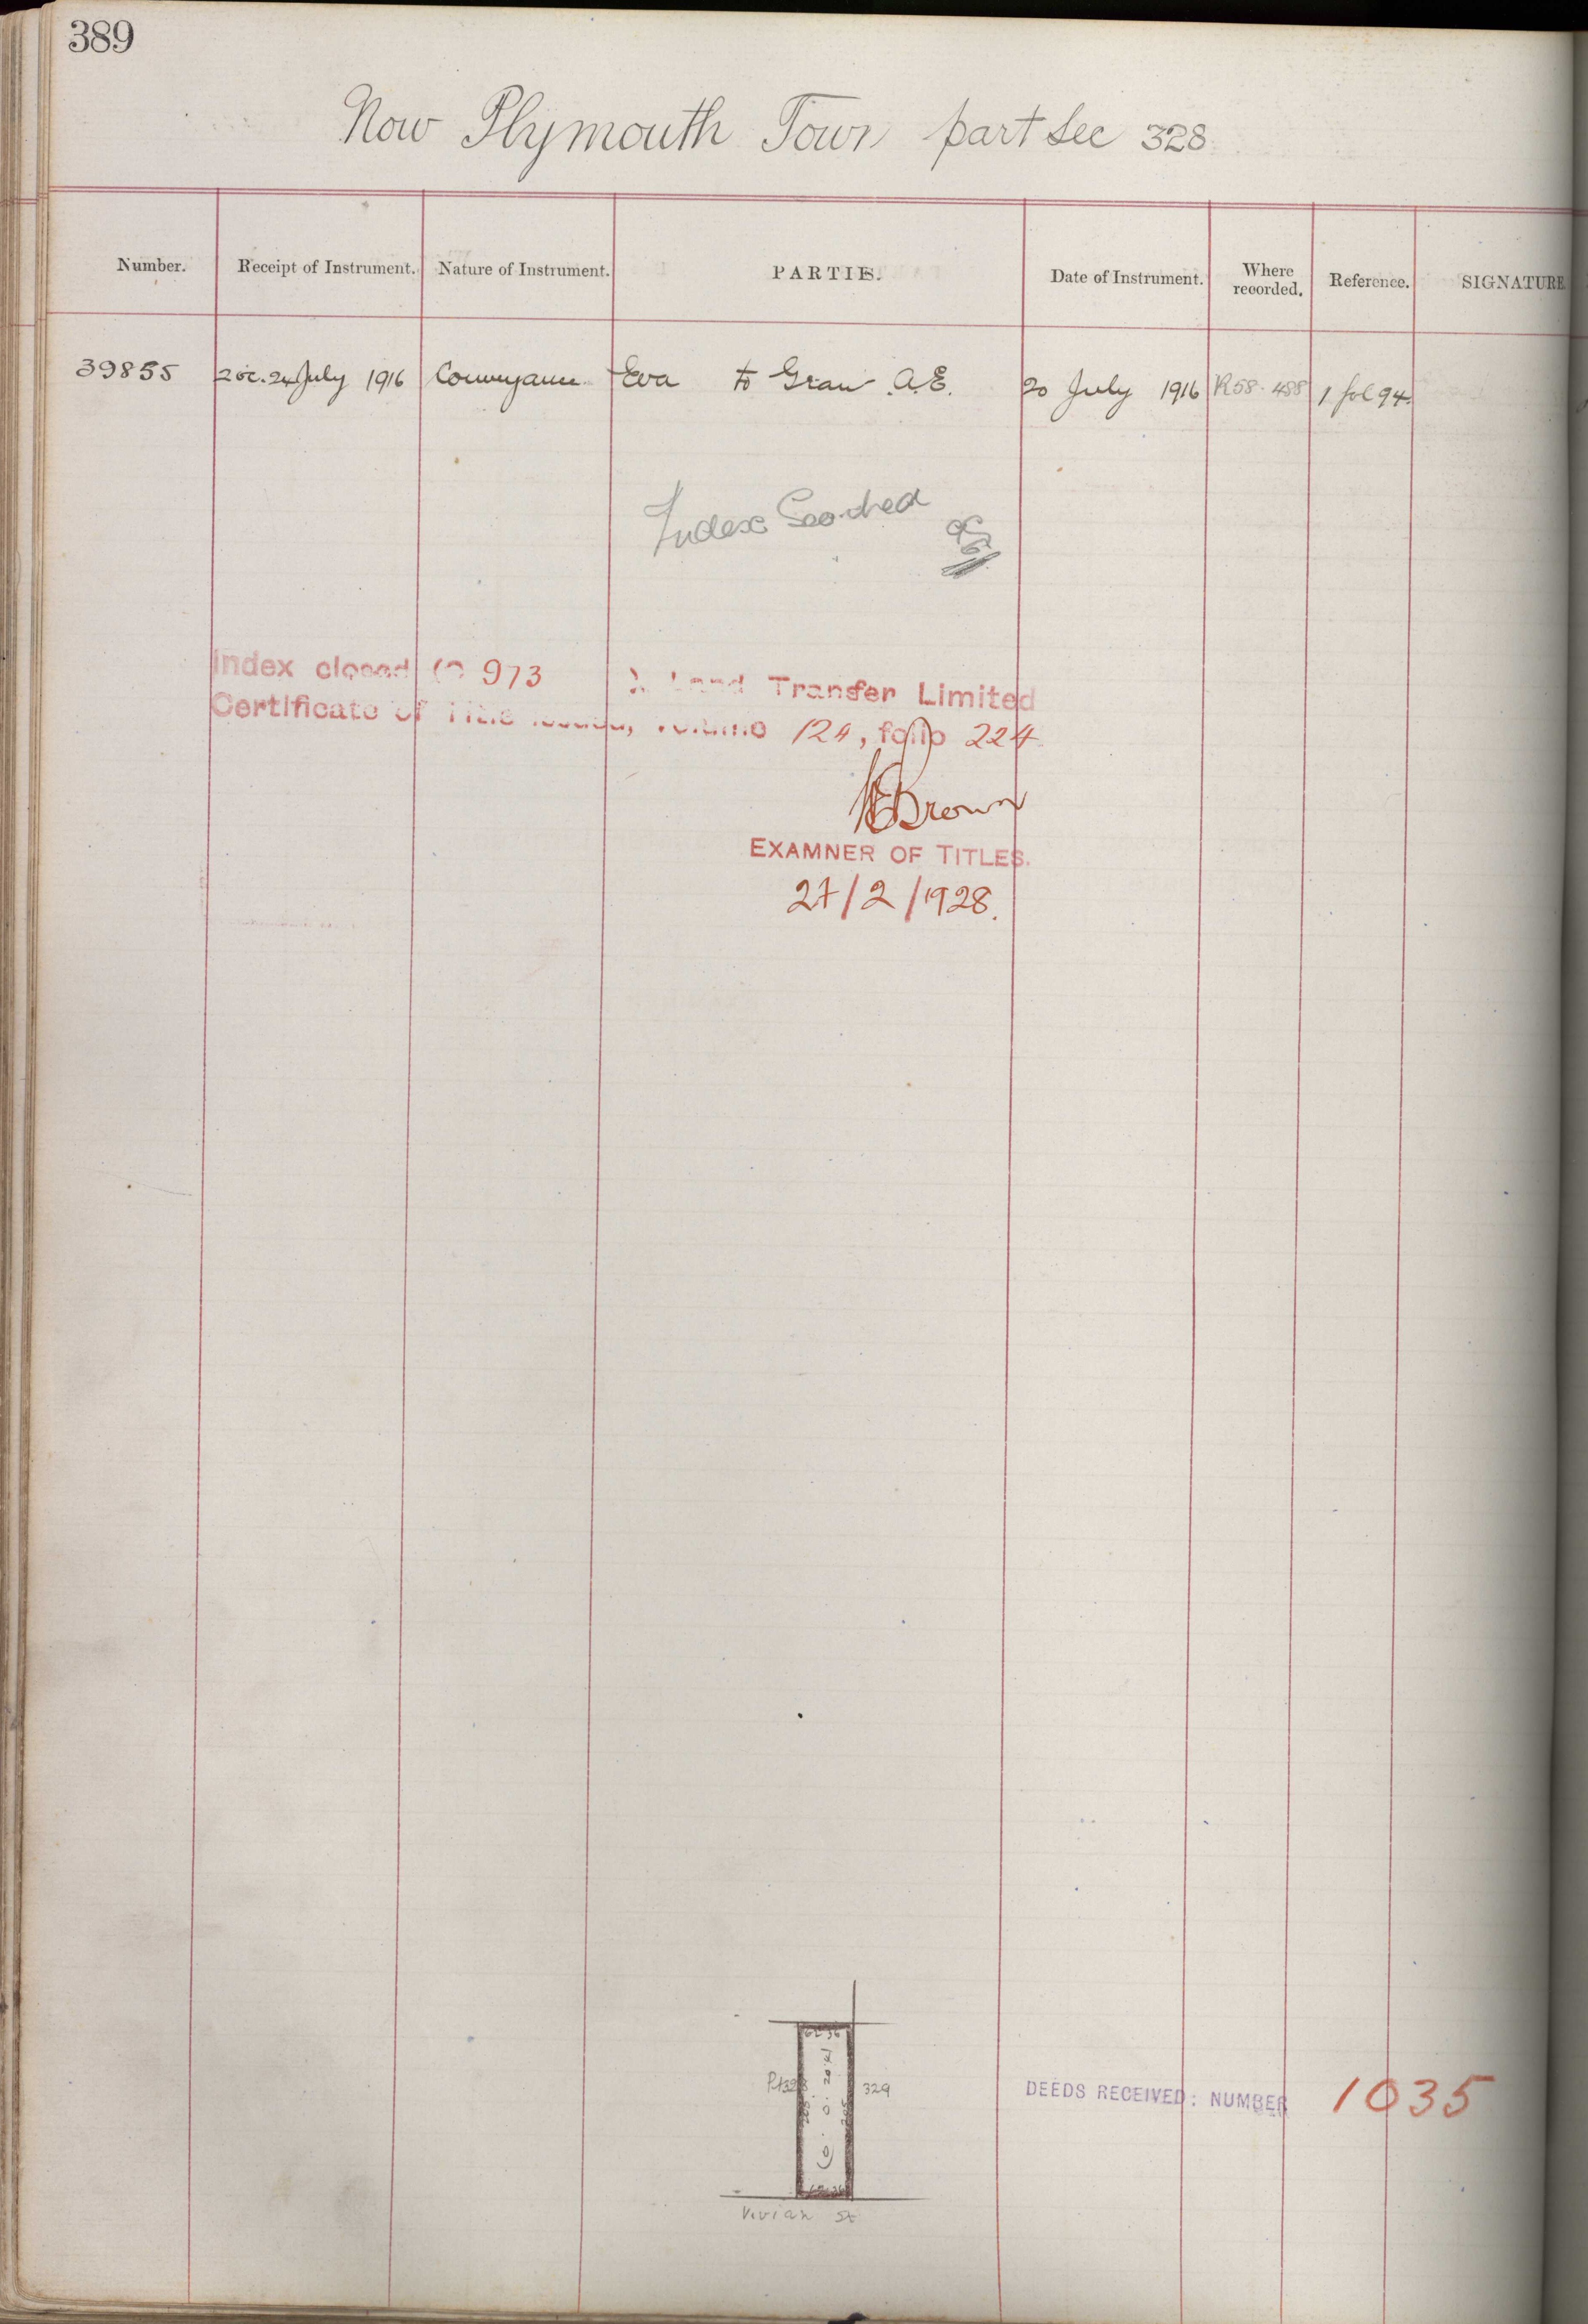 389
New Plymouth Town part Sec 328
Number. Receipt of Instrument. Nature of Instrument. PARTIES. Date of Instrument. Where recorded. Reference. SIGNATURE
39855 2 oc. 24 July 1916 Conveyance Eva to Graw A.E. 20 July 1916 R58. 488 1 fol 94.
Index Searched
Index closed (P 973 ). Land Transfer Limited
Certificate of Title issued, Volume 124, folio 224
Brown
EXAMNER OF TITLES.
27/2/1928.
62.36
Pt 328 0. 0. 20.21 329
DEEDS RECEIVED: NUMBER 1035
Vivian St